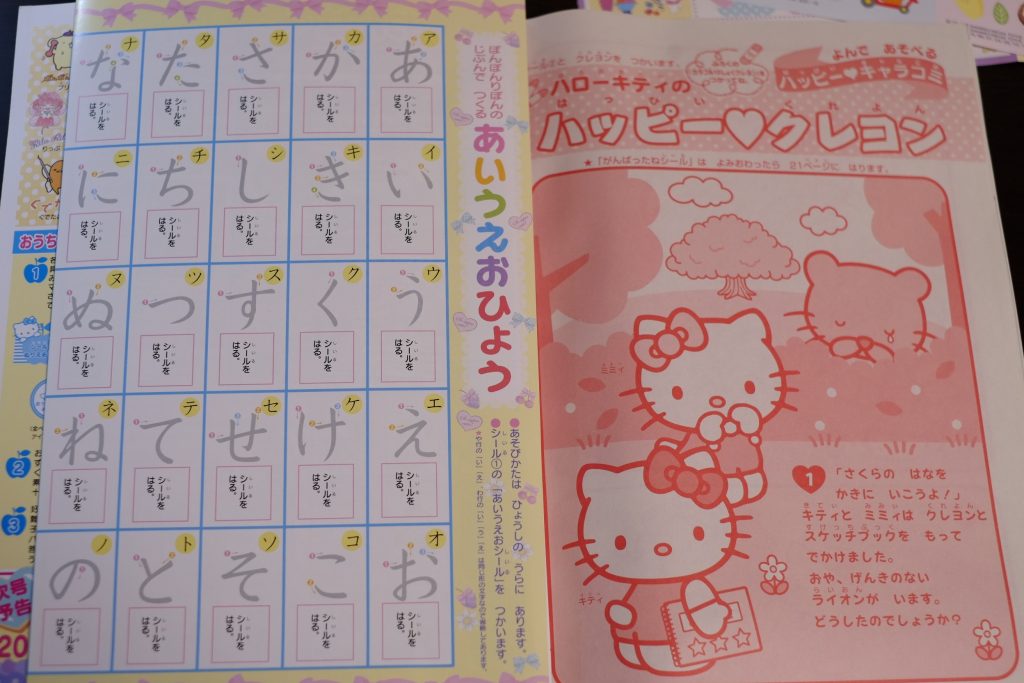 ぽんぽんりぼんの
じぶんで つくる
あいうえおひょう
●あそびかたは ひょうしの うらに あります。
●シール①の「あいうえおシール」を つかいます。
ア
あ
シールを
はる。
イ
い
シールを
はる。
ウ
う
シールを
はる。
エ
え
シールを
はる。
オ
お
シールを
はる。
カ
か
シールを
はる。
キ
き
シールを
はる。
ク
く
シールを
はる。
ケ
け
シールを
はる。
コ
こ
シールを
はる。
サ
さ
シールを
はる。
シ
し
シールを
はる。
ス
す
シールを
はる。
セ
せ
シールを
はる。
ソ
そ
シールを
はる。
タ
た
シールを
はる。
チ
ち
シールを
はる。
ツ
つ
シールを
はる。
テ
て
シールを
はる。
ト
と
シールを
はる。
ナ
な
シールを
はる。
ニ
に
シールを
はる。
ヌ
ぬ
シールを
はる。
ネ
ね
シールを
はる。
ノ
の
シールを
はる。
おうち
1
2
3
次号
予告
20
クレヨンを つかいます。
よんで あそべる
ハッピー♥キャラコミ
ハローキティの
はっぴい くれよん
ハッピー♥クレヨン
★「がんばったねシール」は よみおわったら 21ページに はります。
ミミィ
キティ
1
「さくらの はなを
かきに いこうよ!」
キティと ミミィは クレヨンと
スケッチブックを もって
でかけました。
おや、げんきのない
ライオンが います。
どうしたのでしょうか?